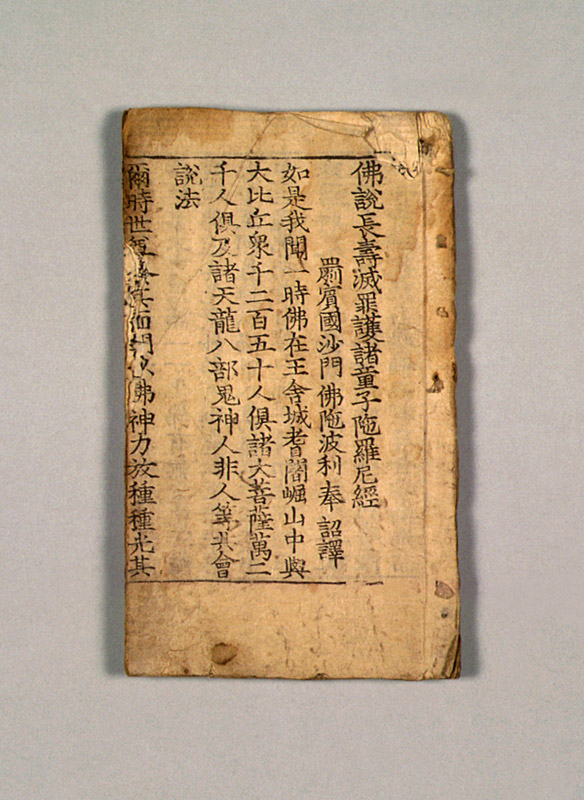 佛說長壽滅罪護諸童子陁羅尼經
罽賓國沙門佛陁波利奉 詔譯
如是我聞一時佛在王舍城耆闍崛山中與
大比丘衆千二百五十人俱諸大菩薩萬二
千人俱及諸天龍八部鬼神人非人等共會
說法
爾時世尊其面門以佛神力放種種光其